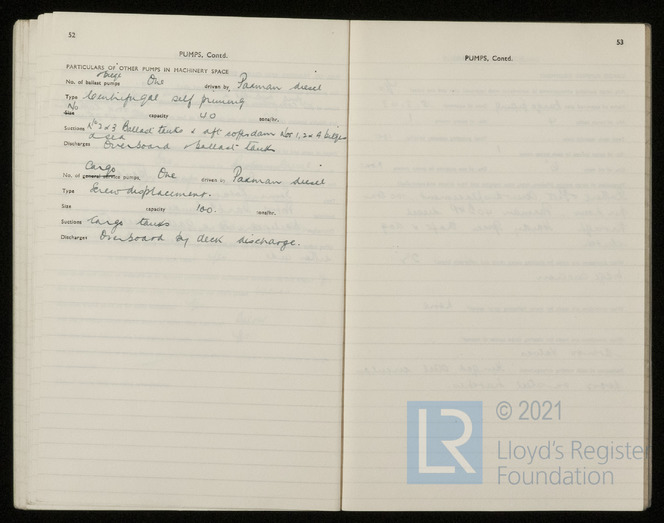 52
PUMPS, Contd.
PARTICULARS OF OTHER PUMPS IN MACHINERY SPACE
No. of ballast pumps One driven by Paxman diesel
Type Centrifugal self priming
No
Size capacity 40 tons/hr.
Suctions Nos 2 & 3 Ballast tanks & aft cofferdam Nos 1, 2 & 4 bilges
& sea
Discharges Overboard & ballast tanks
Cargo
No. of general service pumps, One driven by Paxman diesel
Type Screw displacement.
Size capacity 100. tons/hr.
Suctions Cargo tanks
Discharges Overboard by deck discharge.
53
PUMPS, Contd.
LR © 2021
Lloyd's Register
Foundation